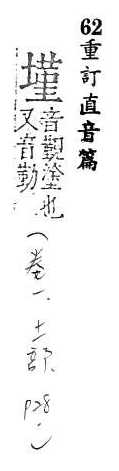 62重訂直音篇
墐音覲塗也
又音勤
(卷一、土部、P28.)